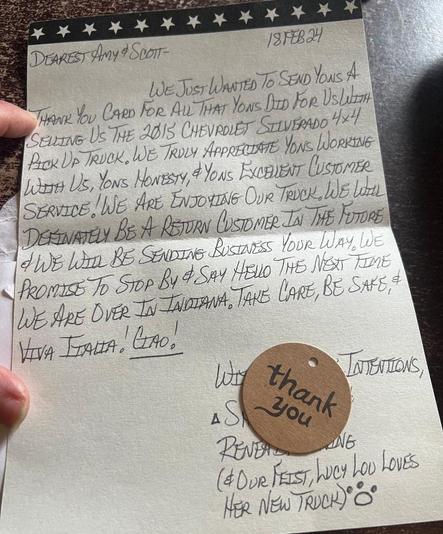 18FEB24
DEAREST AMY & SCOTT-
WE JUST WANTED TO SEND YONS A
THANK YOU CARD FOR ALL THAT YONS DID FOR US WITH
SELLING US THE 2015 CHEVROLET SILVERADO 4X4
PICK UP TRUCK. WE TRULY APPRECIATE YONS WORKING
WITH US, YONS HONESTY, & YONS EXCELLENT CUSTOMER
SERVICE! WE ARE ENJOYING OUR TRUCK. WE WILL
DEFINATELY BE A RETURN CUSTOMER IN THE FUTURE
& WE WILL BE SENDING BUSINESS YOUR WAY. WE
PROMISE TO STOP BY & SAY HELLO THE NEXT TIME
WE ARE OVER IN INDIANA. TAKE CARE, BE SAFE, &
VIVA ITALIA! CIAO!
INTENTIONS,
thank
you
(& OUR FEIST, LUCY LOU LOVES
HER NEW TRUCK)